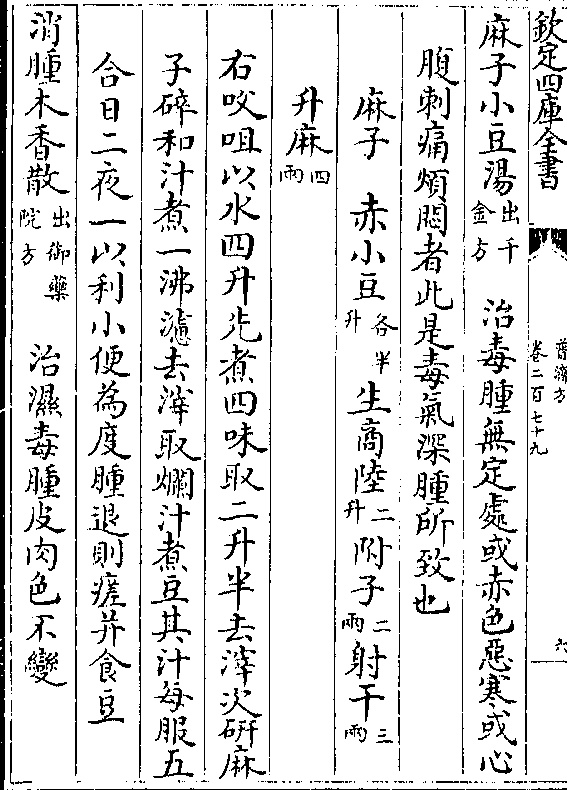 欽定四庫全書
普濟方
卷二百七十九
六
麻子小豆湯出千金方　治毒腫無定處或赤色惡寒或心
腹刺痛煩悶者此是毒氣深腫所致也
麻子　赤小豆各半升　生商陸二升　附子二兩　射干三兩
升麻四兩
右㕮咀以水四升先煮四味取二升半去滓次研麻
子碎和汁煮一沸濾去滓取爛汁煮豆其汁每服五
合日二夜一以利小便為度腫退則瘥并食豆
消腫木香散出御藥院方　治濕毒腫皮肉色不變